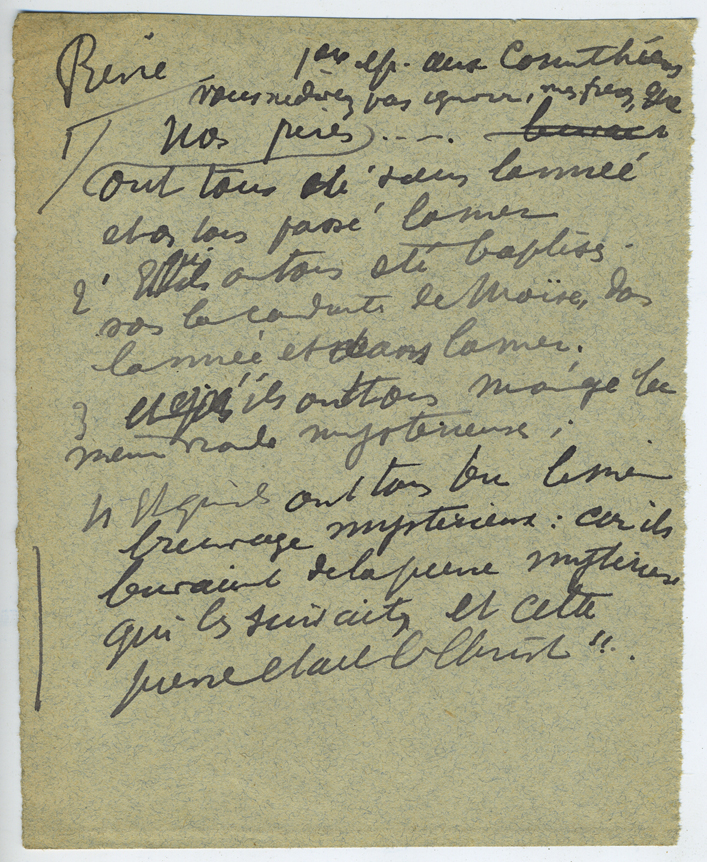 1ère ep. aux Corinthiens
vous ne devez pas ignorer, mes frères, que
1/ Nos pères .....
ont tous été sous la nuée
et os tous passé la mer
2' Et qu'ils on tous été baptisés.
sos la conduite de Moïse, das
la nuée et dans la mer.
3 et qu'ils ont tous mangé le
même viande mystérieuse ;
4 Et qu'ils ont tous bu le même
breuvage mystérieux : car ils
buvaient de la pierre mystérieuse
qui les suivait, et cette
pierre était le Christ".